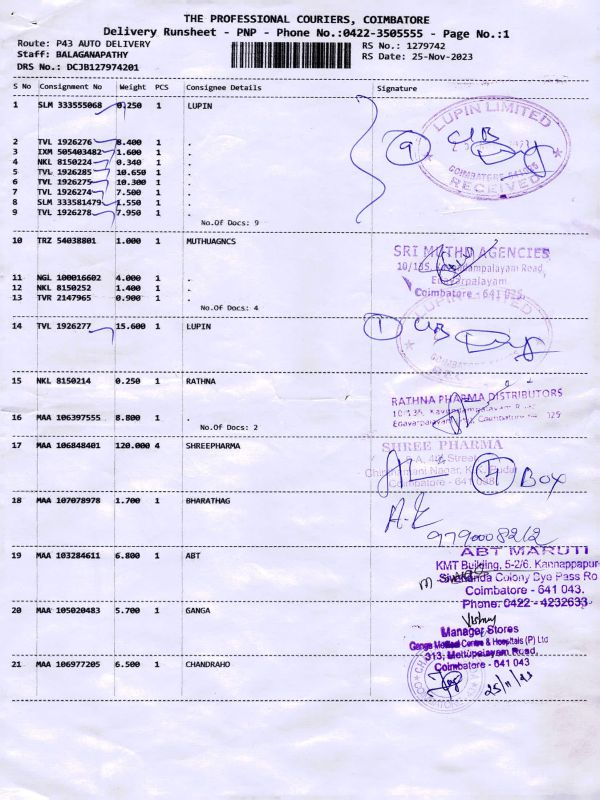 THE PROFESSIONAL COURIERS, COIMBATORE
Delivery Runsheet - PNP - Phone No.:0422-3505555 - Page No.:1
Route: P43 AUTO DELIVERY RS No.: 1279742
Staff: BALAGANAPATHY RS Date: 25-Nov-2023
DRS No.: DCJB127974201
S No Consignment No Weight PCS Consignee Details Signature
1 SLM 333555068 0.250 1 LUPIN
LUPIN LIMITED
9
COIMBATORE
RECEIVED
2 TVL 1926276 8.400 1 .
3 IXM 505403482 1.600 1 .
4 NKL 8150224 0.340 1 .
5 TVL 1926285 10.650 1 .
6 TVL 1926275 10.300 1 .
7 TVL 1926274 7.500 1 .
8 SLM 333581479 1.550 1 .
9 TVL 1926278 7.950 1 .
No.Of Docs: 9
10 TRZ 54038801 1.000 1 MUTHUAGNCS
SRI MUTHU AGENCIES
Edayarpalayam
Coimbatore - 641 025.
11 NGL 100016602 4.000 1 .
12 NKL 8150252 1.400 1 .
13 TVR 2147965 0.900 1 .
No.Of Docs: 4
14 TVL 1926277 15.600 1 LUPIN
1
15 NKL 8150214 0.250 1 RATHNA
RATHNA PHARMA DISTRIBUTORS
16 MAA 106397555 8.800 1 .
No.Of Docs: 2
17 MAA 106848401 120.000 4 SHREEPHARMA
SHREE PHARMA
Coimbatore - 641 038
1 BOX
18 MAA 107078978 1.700 1 BHARATHAG
9790008212
19 MAA 103284611 6.800 1 ABT
ABT MARUTI
KMT Building, 5-2/6. Kannappapur
Sivananda Colony Bye Pass Ro
Coimbatore - 641 043.
Phone: 0422 - 4232633
20 MAA 105020483 5.700 1 GANGA
Vishny
Manager Stores
Ganga Medical Centre & Hospitals (P) Ltd
313, Mettupalayam Road,
Coimbatore - 641 043
21 MAA 106977205 6.500 1 CHANDRAHO
25/11/23